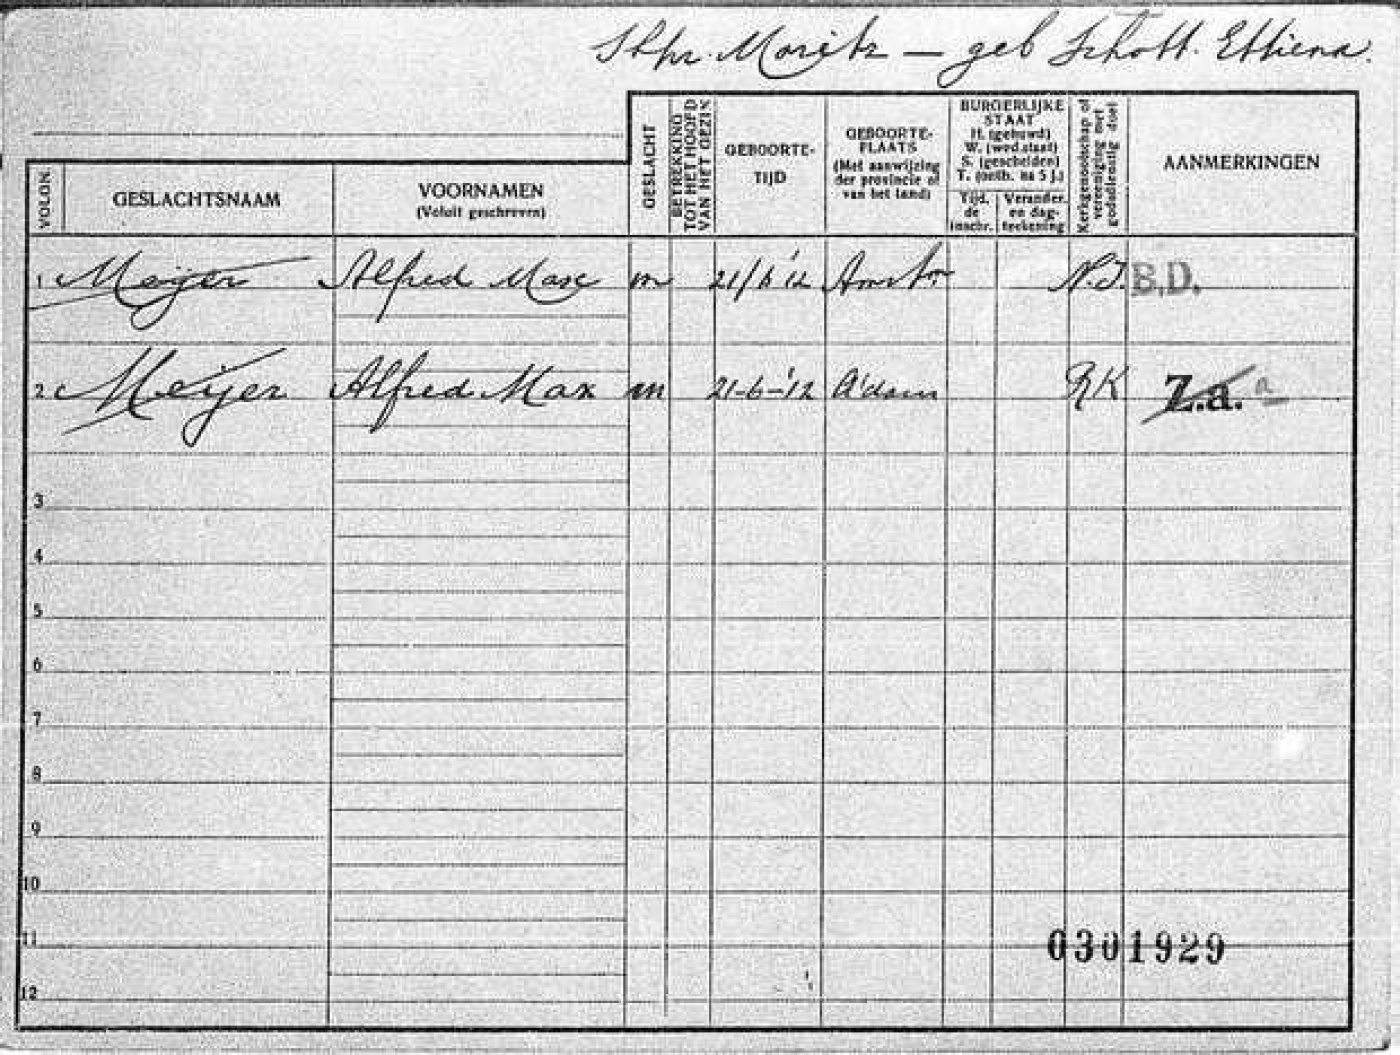 Moritz — geb Schott. Ethiena.
VOLGN. GESLACHTSNAAM VOORNAMEN (Voluit geschreven) GESLACHT BETREKKING TOT HET HOOFD VAN HET GEZIN GEBOORTE-TIJD GEBOORTE-PLAATS (Met aanwijzing der provincie of van het land) BURGERLIJKE STAAT H. (gehuwd) W. (wed.staat) S. (gescheiden) T. (ontb. na 5 j.) Tijd. de inschr. Verander. en dag-teekening Kerkgenootschap of vereeniging met godsdienstig doel AANMERKINGEN
1 Meijer Alfred Max m 21/6 '12 Amstm N.I. B.D.
2 Meijer Alfred Max m 21-6-'12 A'dam RK Z.a. a
3
4
5
6
7
8
9
10
11 0301929
12